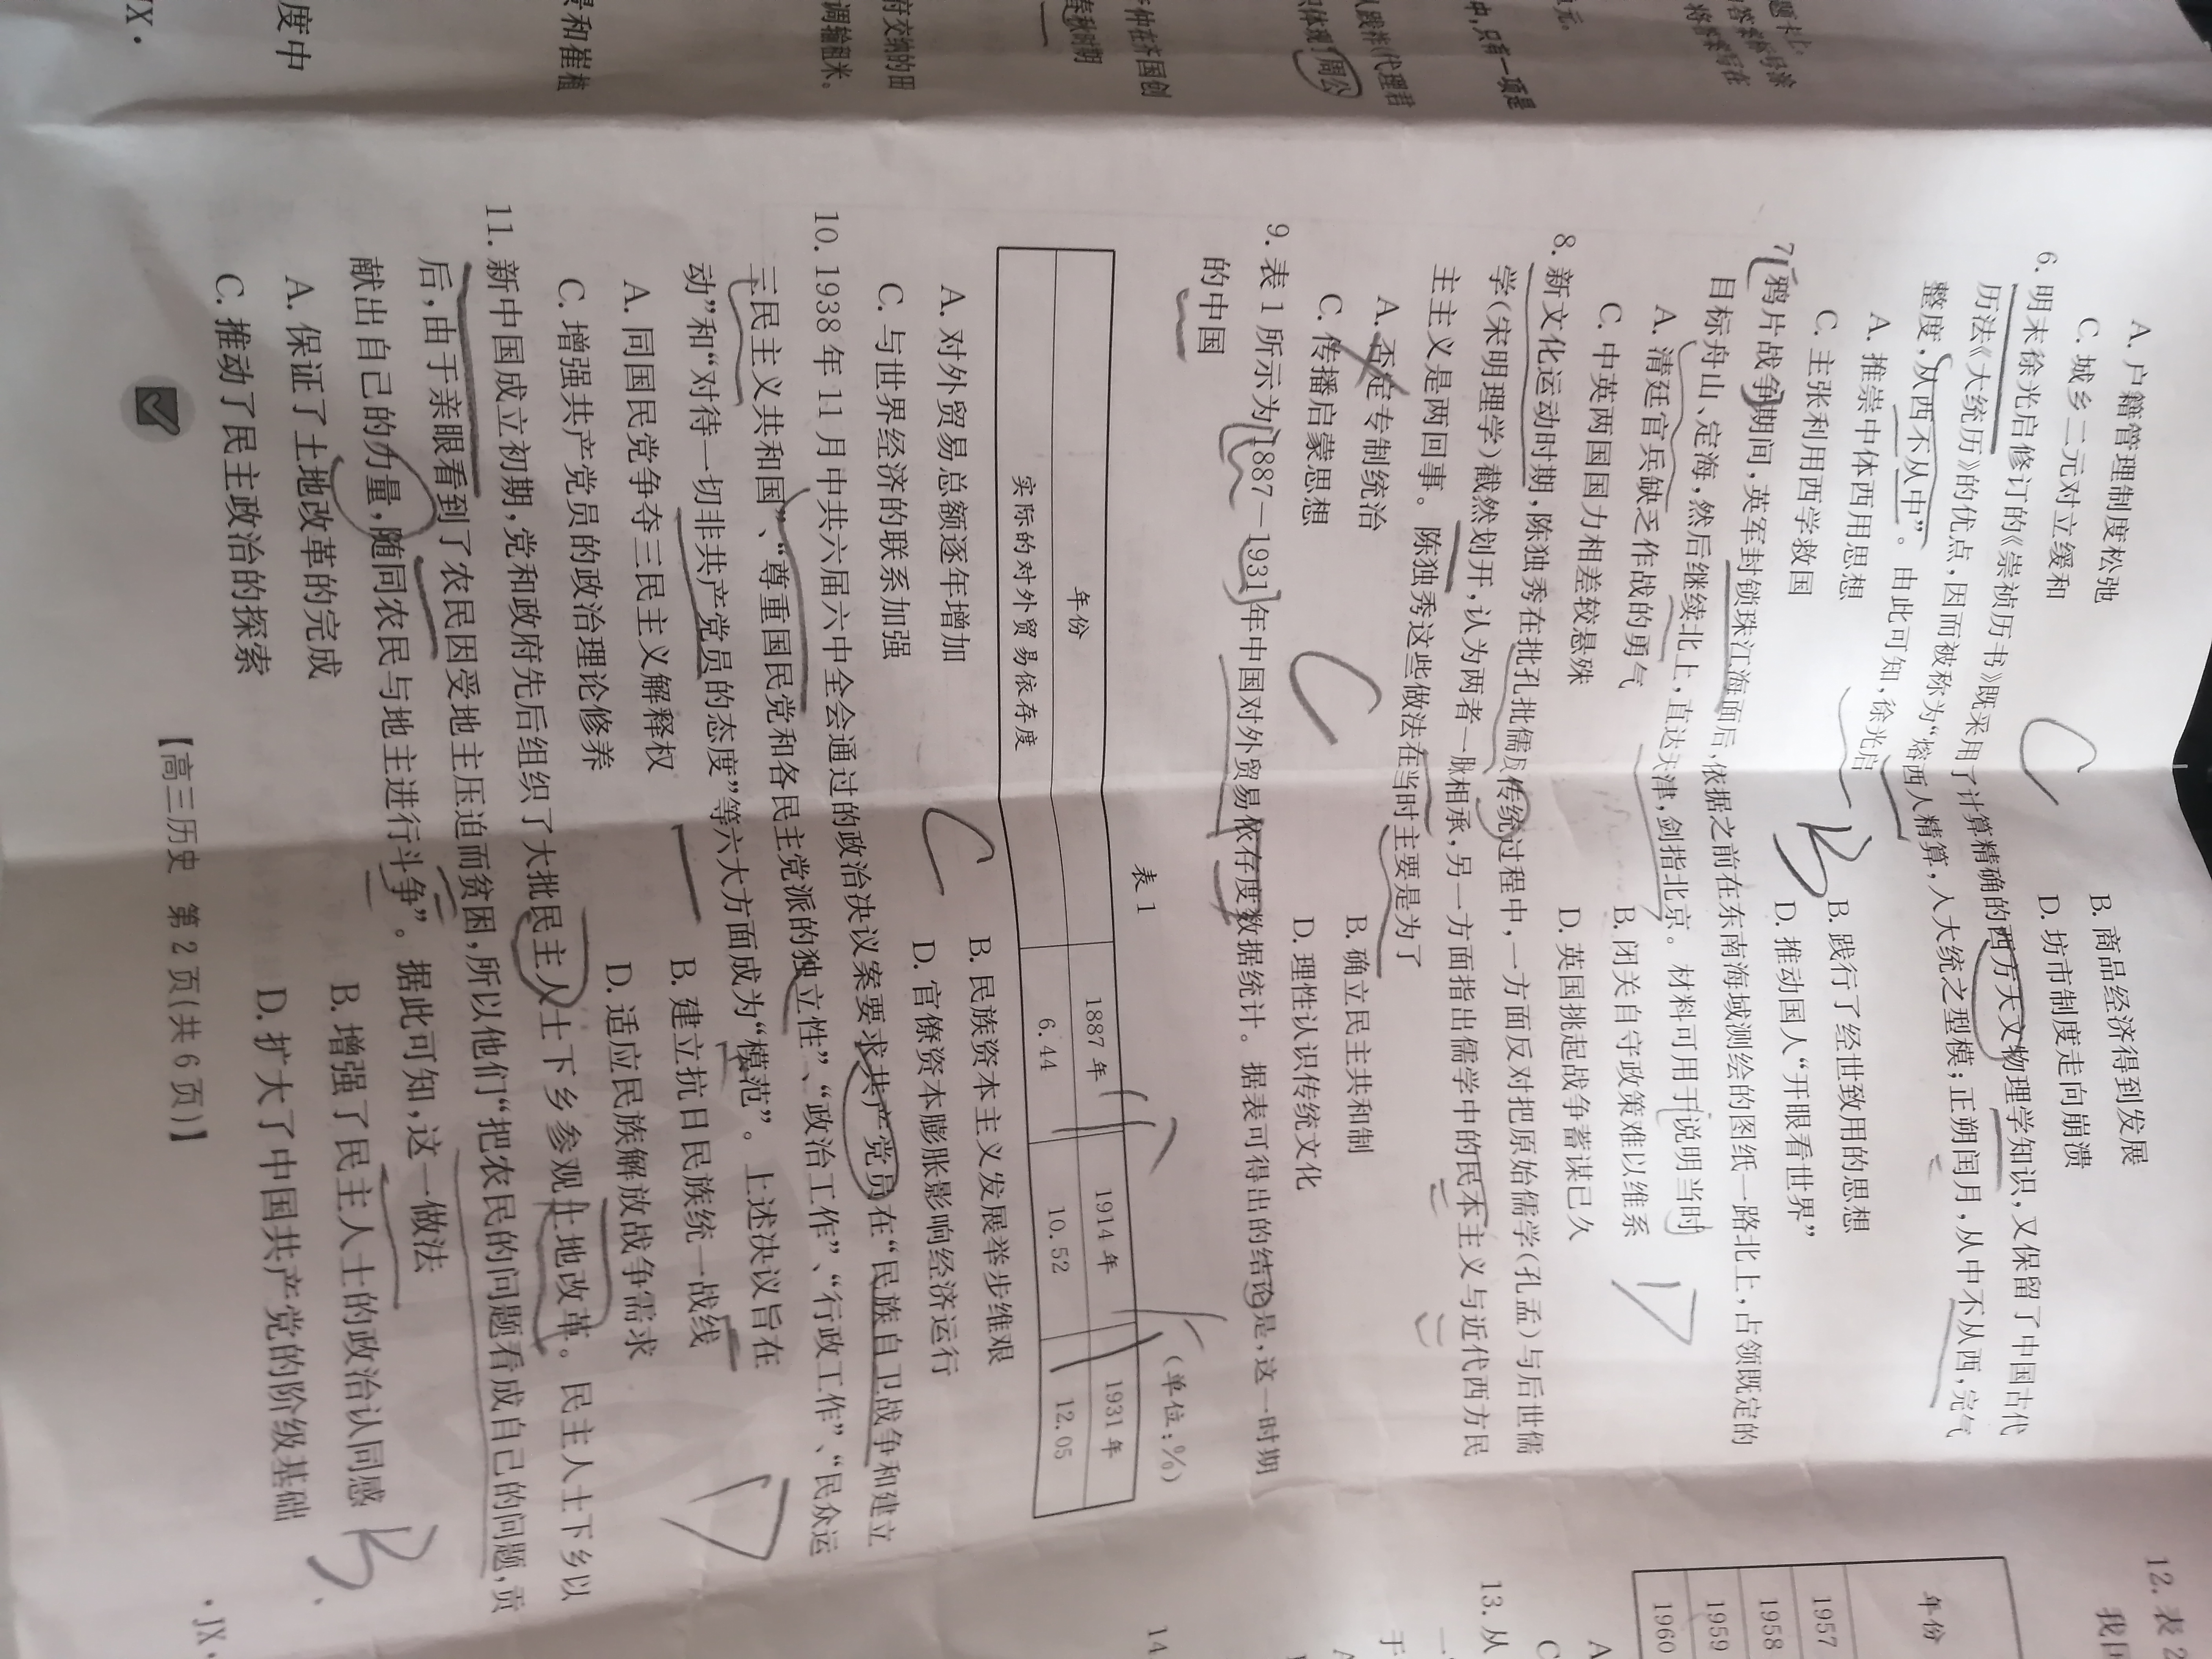 A. 户籍管理制度松弛 B. 商品经济得到发展
C. 城乡二元对立缓和 D. 坊市制度走向崩溃
6. 明末徐光启修订的《崇祯历书》既采用了计算精确的西方天文物理学知识,又保留了中国古代
历法《大统历》的优点,因而被称为“熔西人精算,入大统之型模;正朔闰月,从中不从西,完气
整度,从西不从中”。由此可知,徐光启
A. 推崇中体西用思想 B. 践行了经世致用的思想
C. 主张利用西学救国 D. 推动国人“开眼看世界”
7. 鸦片战争期间,英军封锁珠江海面后,依据之前在东南海域测绘的图纸一路北上,占领既定的
目标舟山、定海,然后继续北上,直达天津,剑指北京。材料可用于说明当时
A. 清廷官兵缺乏作战的勇气 B. 闭关自守政策难以维系
C. 中英两国国力相差较悬殊 D. 英国挑起战争蓄谋已久
8. 新文化运动时期,陈独秀在批孔批儒反传统过程中,一方面反对把原始儒学(孔孟)与后世儒
学(宋明理学)截然划开,认为两者一脉相承,另一方面指出儒学中的民本主义与近代西方民
主主义是两回事。陈独秀这些做法在当时主要是为了
A. 否定专制统治 B. 确立民主共和制
C. 传播启蒙思想 D. 理性认识传统文化
9. 表 1 所示为1887—1931年中国对外贸易依存度数据统计。据表可得出的结论是,这一时期
的中国
表 1 (单位:%)
年份 1887 年 1914 年 1931 年
实际的对外贸易依存度 6.44 10.52 12.05
A. 对外贸易总额逐年增加 B. 民族资本主义发展举步维艰
C. 与世界经济的联系加强 D. 官僚资本膨胀影响经济运行
10. 1938 年 11 月中共六届六中全会通过的政治决议案要求共产党员在“民族自卫战争和建立
三民主义共和国”、“尊重国民党和各民主党派的独立性”、“政治工作”、“行政工作”、“民众运
动”和“对待一切非共产党员的态度”等六大方面成为“模范”。上述决议旨在
A. 同国民党争夺三民主义解释权 B. 建立抗日民族统一战线
C. 增强共产党员的政治理论修养 D. 适应民族解放战争需求
11. 新中国成立初期,党和政府先后组织了大批民主人士下乡参观土地改革。民主人士下乡以
后,由于亲眼看到了农民因受地主压迫而贫困,所以他们“把农民的问题看成自己的问题,贡
献出自己的力量,随同农民与地主进行斗争”。据此可知,这一做法
A. 保证了土地改革的完成 B. 增强了民主人士的政治认同感
C. 推动了民主政治的探索 D. 扩大了中国共产党的阶级基础
【高三历史 第 2 页(共 6 页)】
·JX·
C
B
D
C
C
D
B
将答案写在
中,只有一项是
体现了周公
春秋时期
府交纳的田
调输租米。
和崔植
度中
JX·
12. 表 2
年份
1957
1958
1959
1960
13. 从
14